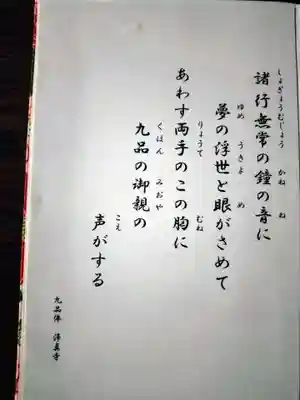 諸行無常の鐘の音に
しょぎょうむじょう かね ね
夢の浮世と眼がさめて
ゆめ うきよ め
あわす両手のこの胸に
りょうて むね
九品の御親の
くぼん みおや
声がする
こえ
九品佛 浄真寺